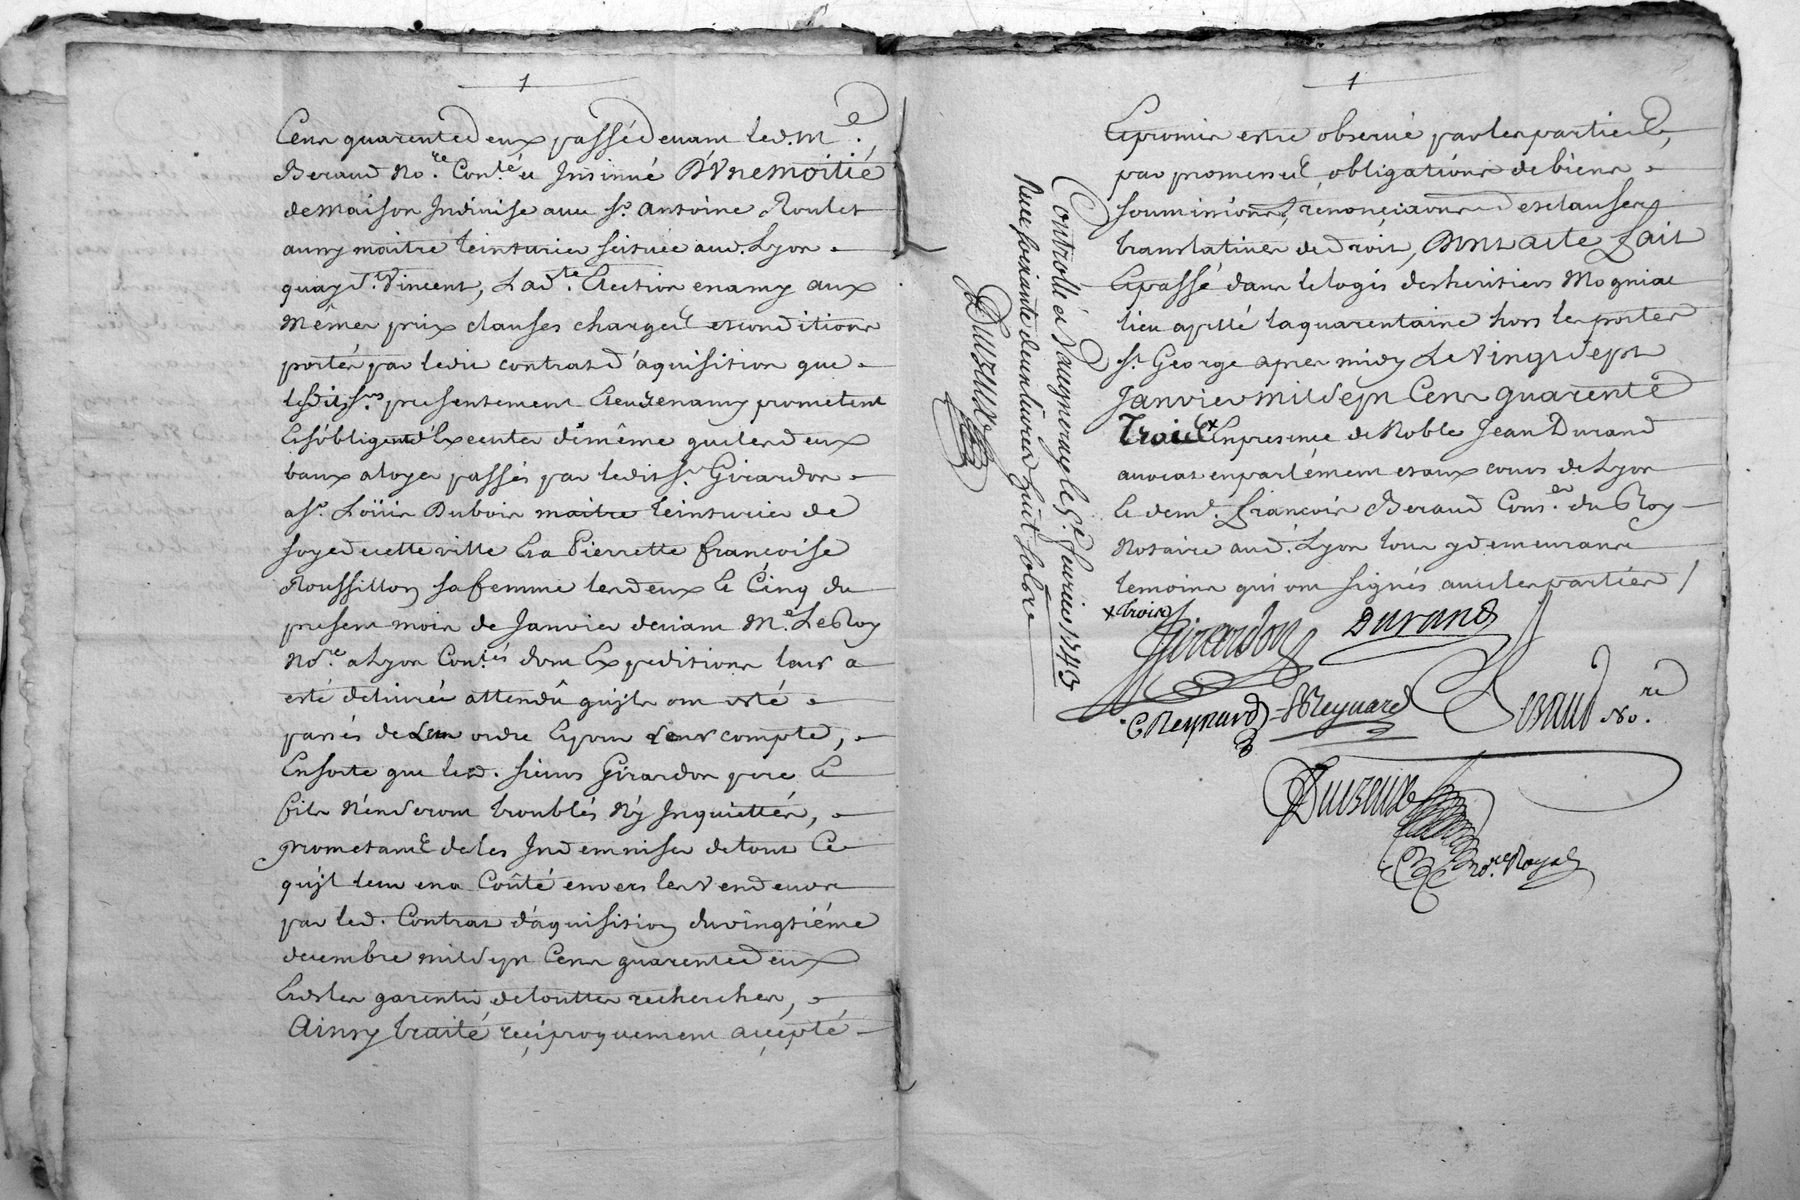 1
Cens quarentedeux passé devant led. Me.
Beraud No.re Con.té et Insinué D'Vne moitié
de maison Indivise avec Sr. Antoine Roulet
aussy maitre teinturier scituée aud. Lyon
quay St. Vincent, Lad.te Election en amy aux
Mêmes prix clauses charges et conditions
portés par ledit contrat d'aquisition que
lesdits Srs presentement Eleus en amy prometent
Et s'obligent d'Executer de même que les deux
baux a loyer passés par ledit Sr. Girardon
a Sr. Loüis Dubois maitre teinturier de
soye de cette ville Et a Pierrette françoise
Roussillon sa femme les deux Le Cinq du
present mois de Janvier devant Me. LeRoy
No.re a Lyon Con.tés dont Expeditions leur a
esté delivrée attendû qu'jls ont esté
passés de Leur ordre Et pour Leur compte,
Ensorte que led. sieurs Girardon pere Et
fils N'en seront troublés Ny Inquiettés,
prometant de les Indemniser de tout Ce
qu'jl leur en a Coûté envers les vendeurs
par led. Contrat d'aquisition du vingtiéme
decembre mil sept Cens quarentedeux
Et de les garentir de touttes recherches,
Ainsy traité reciproquement accepté
1
Et promis estre observé par les parties,
par promesses, obligations de biens
soumissions, renonciations et clauses
translatives de droit, Dont acte Fait
Et passé dans le logis des heritiers Mogniat
lieu apellé la quarentaine hors les portes
St. George apres midy Le vingt sept
Janvier mil sept Cens quarente
Trois x En presence de Noble Jean Durand
avocat en parlément et aux cours de Lyon
Et de Me. François Beraud Cons.er du Roy
Notaire aud. Lyon tous y demeurans
temoins qui ont signés avec les parties /
x trois
Girardon
Durand
C Reynard
Reynard
Beraud No.re
Duzeux
No.re Royal
Controllé a Vaugneray le 5.e feurier 1743
Receu soixante deux livres huit sols
Duzeux